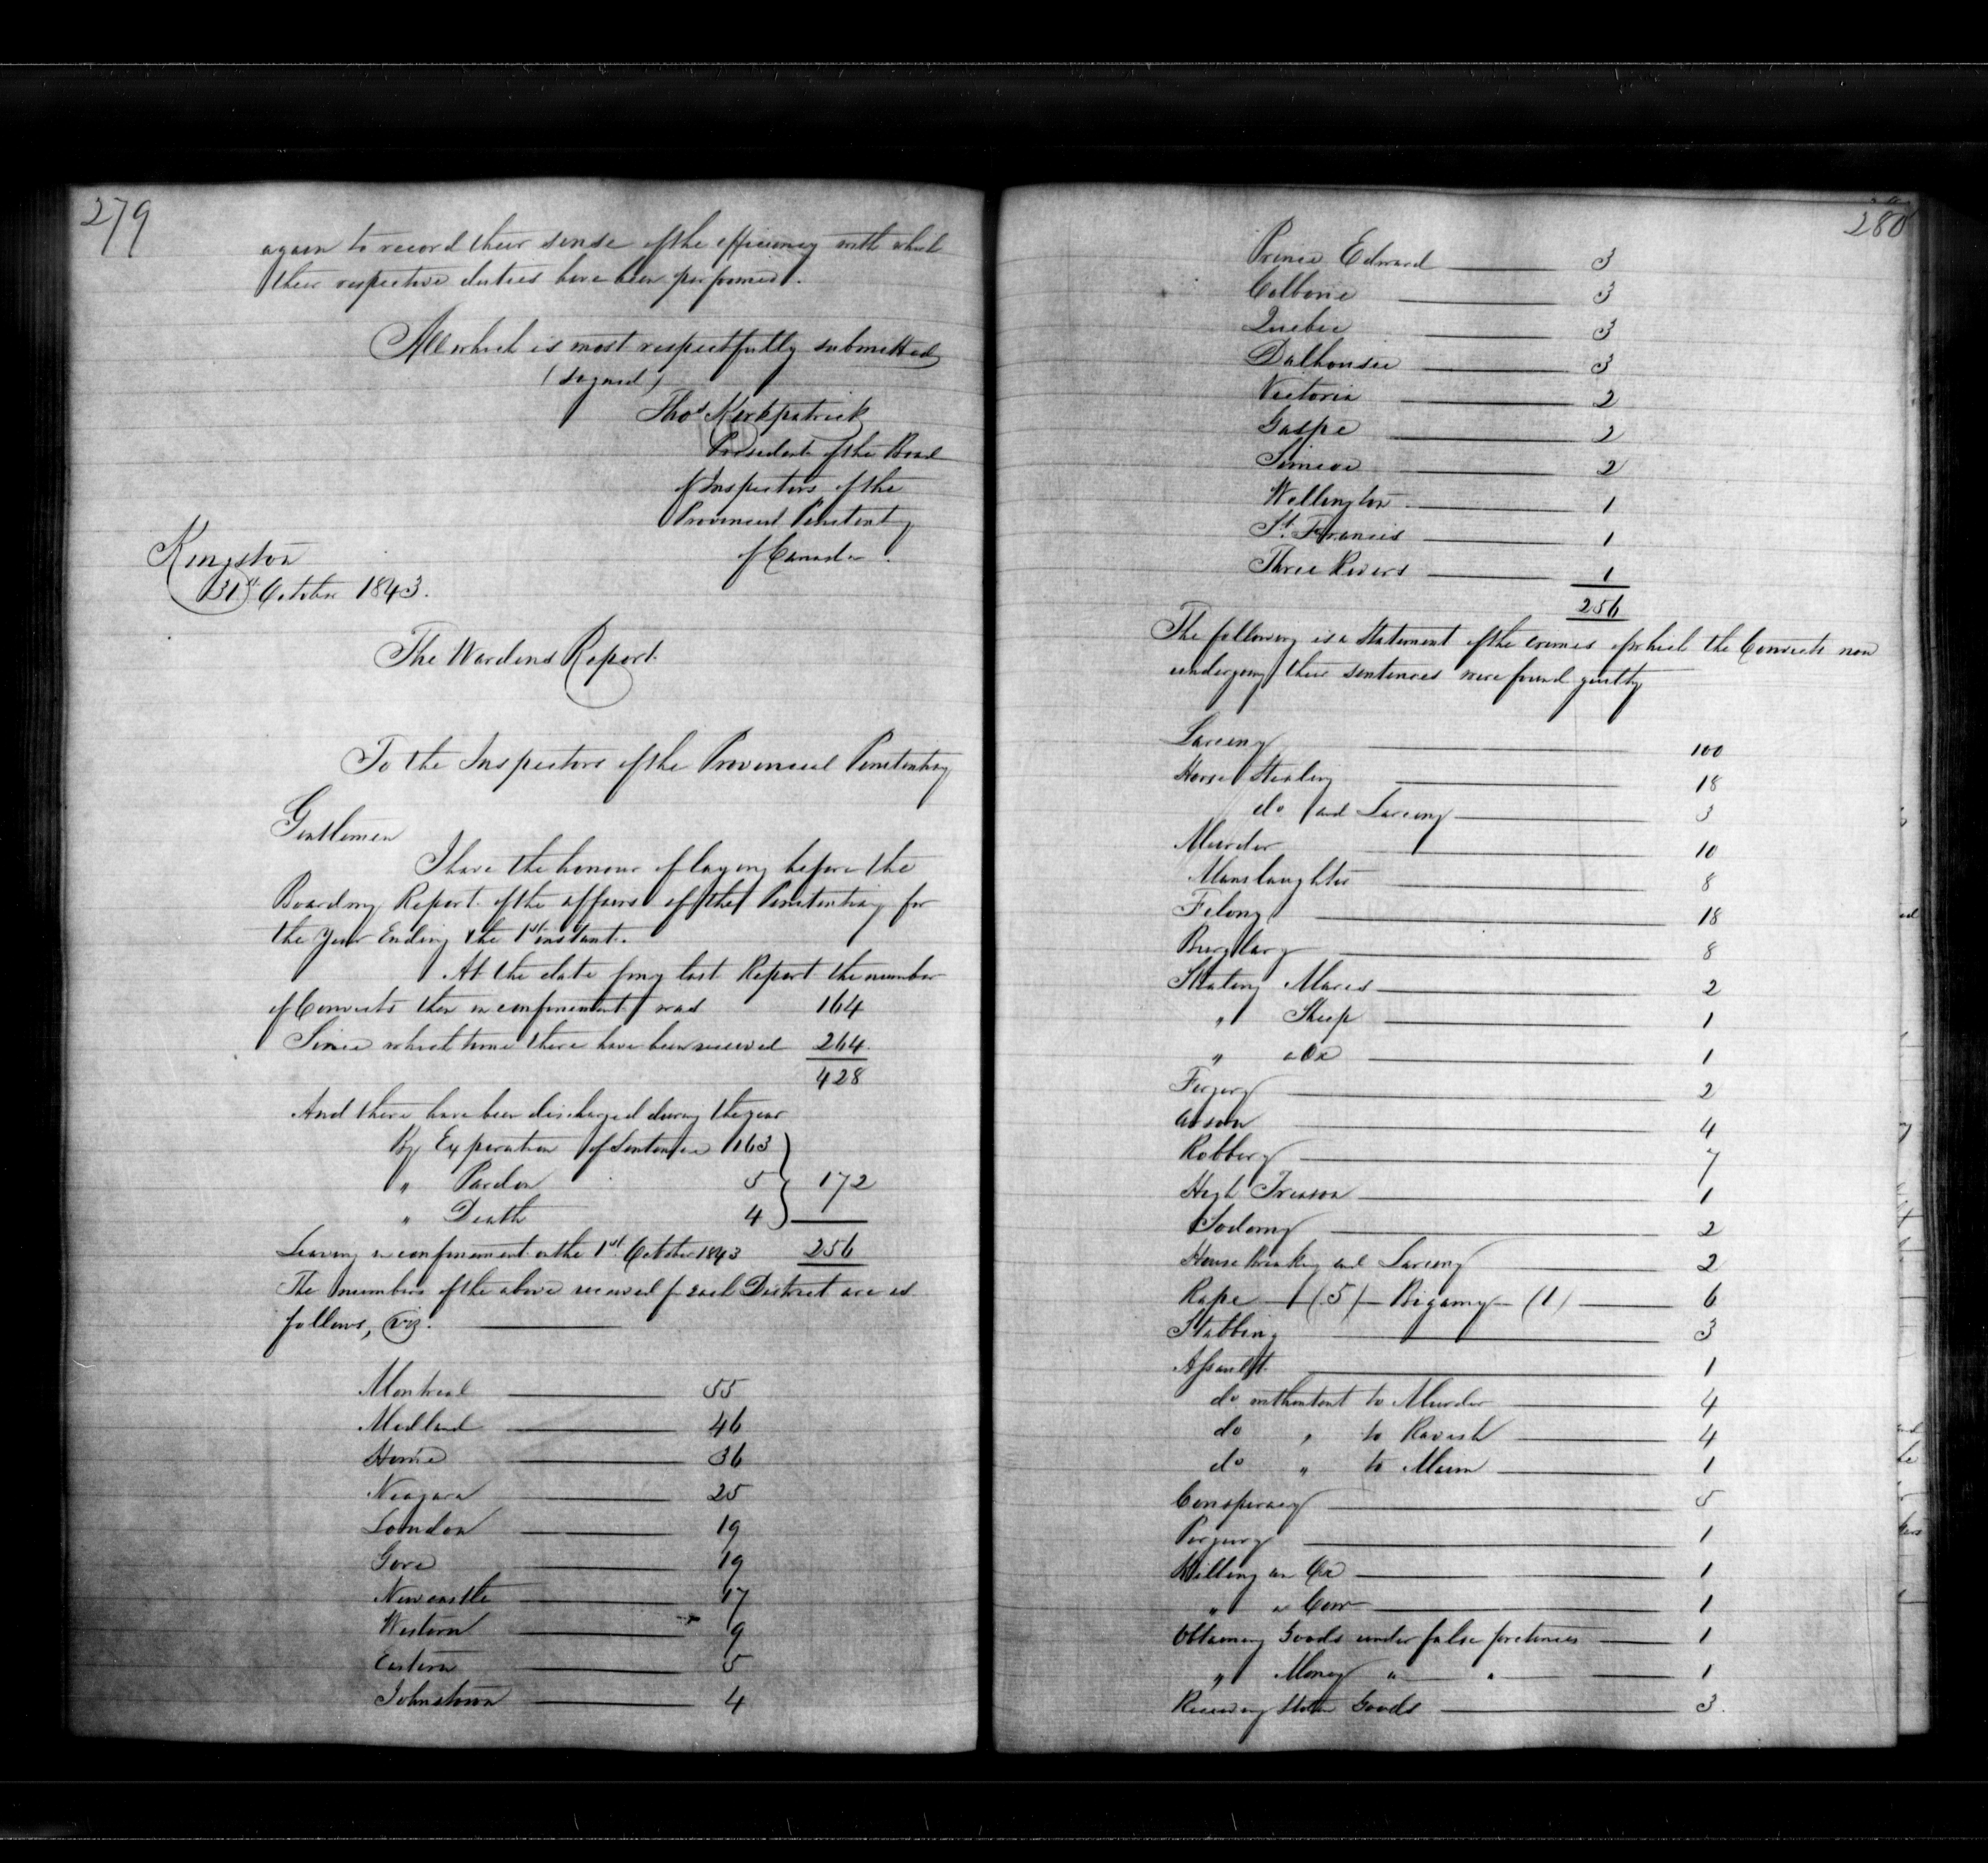 279
again to record their sense of the efficiency with which
their respective duties have been performed.
All which is most respectfully submitted
(signed)
Thos Kirkpatrick
President of the Board
of Inspectors of the
Provincial Penitenty
of Canada.
Kingston
31st October 1843.
The Wardens Report.
To the Inspectors of the Provincial Penitentiary
Gentlemen
I have the honour of laying before the
Board my Report of the affairs of the Penitentiary for
the Year Ending the 1st instant.
At the date of my last Report the number
of Convicts then in confinement was 164
Since which time there have been received 264
428
And there have been discharged during the year
By Expiration of Sentence 163
" Pardon 5 } 172
" Death 4
Leaving in confinement on the 1st October 1843 256
The numbers of the above received fr each District are as
follows, viz.
Montreal 55
Midland 46
Home 36
Niagara 25
London 19
Gore 19
Newcastle 17
Western 9
Eastern 5
Johnstown 4
280
Prince Edward 3
Colborne 3
Quebec 3
Dalhousie 3
Victoria 2
Gaspe 2
Simcoe 2
Wellington 1
St. Francis 1
Three Rivers 1
256
The following is a Statement of the crimes of which the Convicts now
undergoing their sentences were found guilty
Larceny 100
Horse Stealing 18
do and Larceny 3
Murder 10
Manslaughter 8
Felony 18
Burglary 8
Stealing Mares 2
" Sheep 1
" a Ox 1
Forgery 2
Arson 4
Robbery 7
High Treason 1
Sodomy 2
House breaking and Larceny 2
Rape (5) Bigamy (1) 6
Stabbing 3
Assault 1
do with intent to Murder 4
do " to Ravish 4
do " to Maim 1
Conspiracy 5
Perjury 1
Killing an Ox 1
" a Cow 1
Obtaining Goods under false pretences 1
" Money " " 1
Receiving Stolen Goods 3.